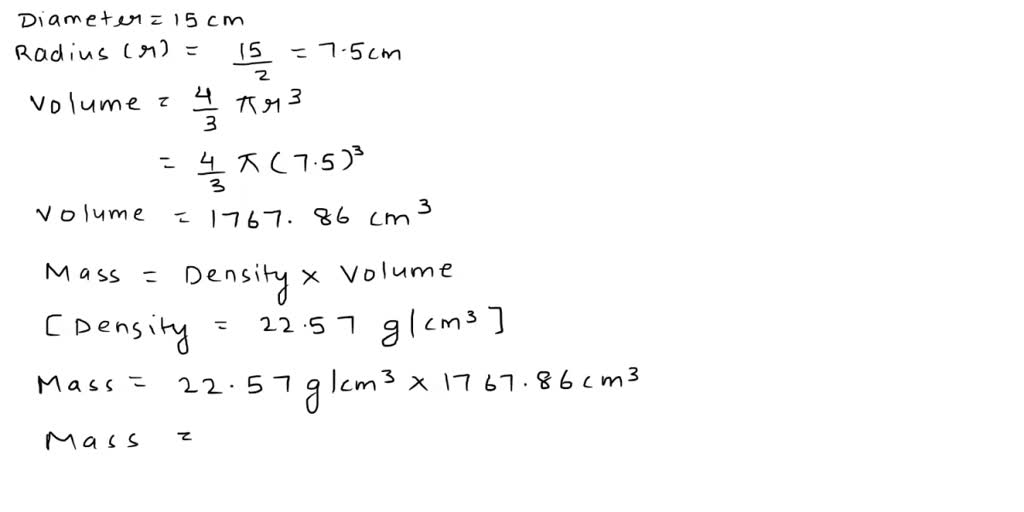 Diameter = 15 cm
Radius (r) = 15/2 = 7.5 cm
Volume = 4/3 π r³
= 4/3 π (7.5)³
Volume = 1767.86 cm³
Mass = Density × Volume
[Density = 22.57 g/cm³]
Mass = 22.57 g/cm³ × 1767.86 cm³
Mass =